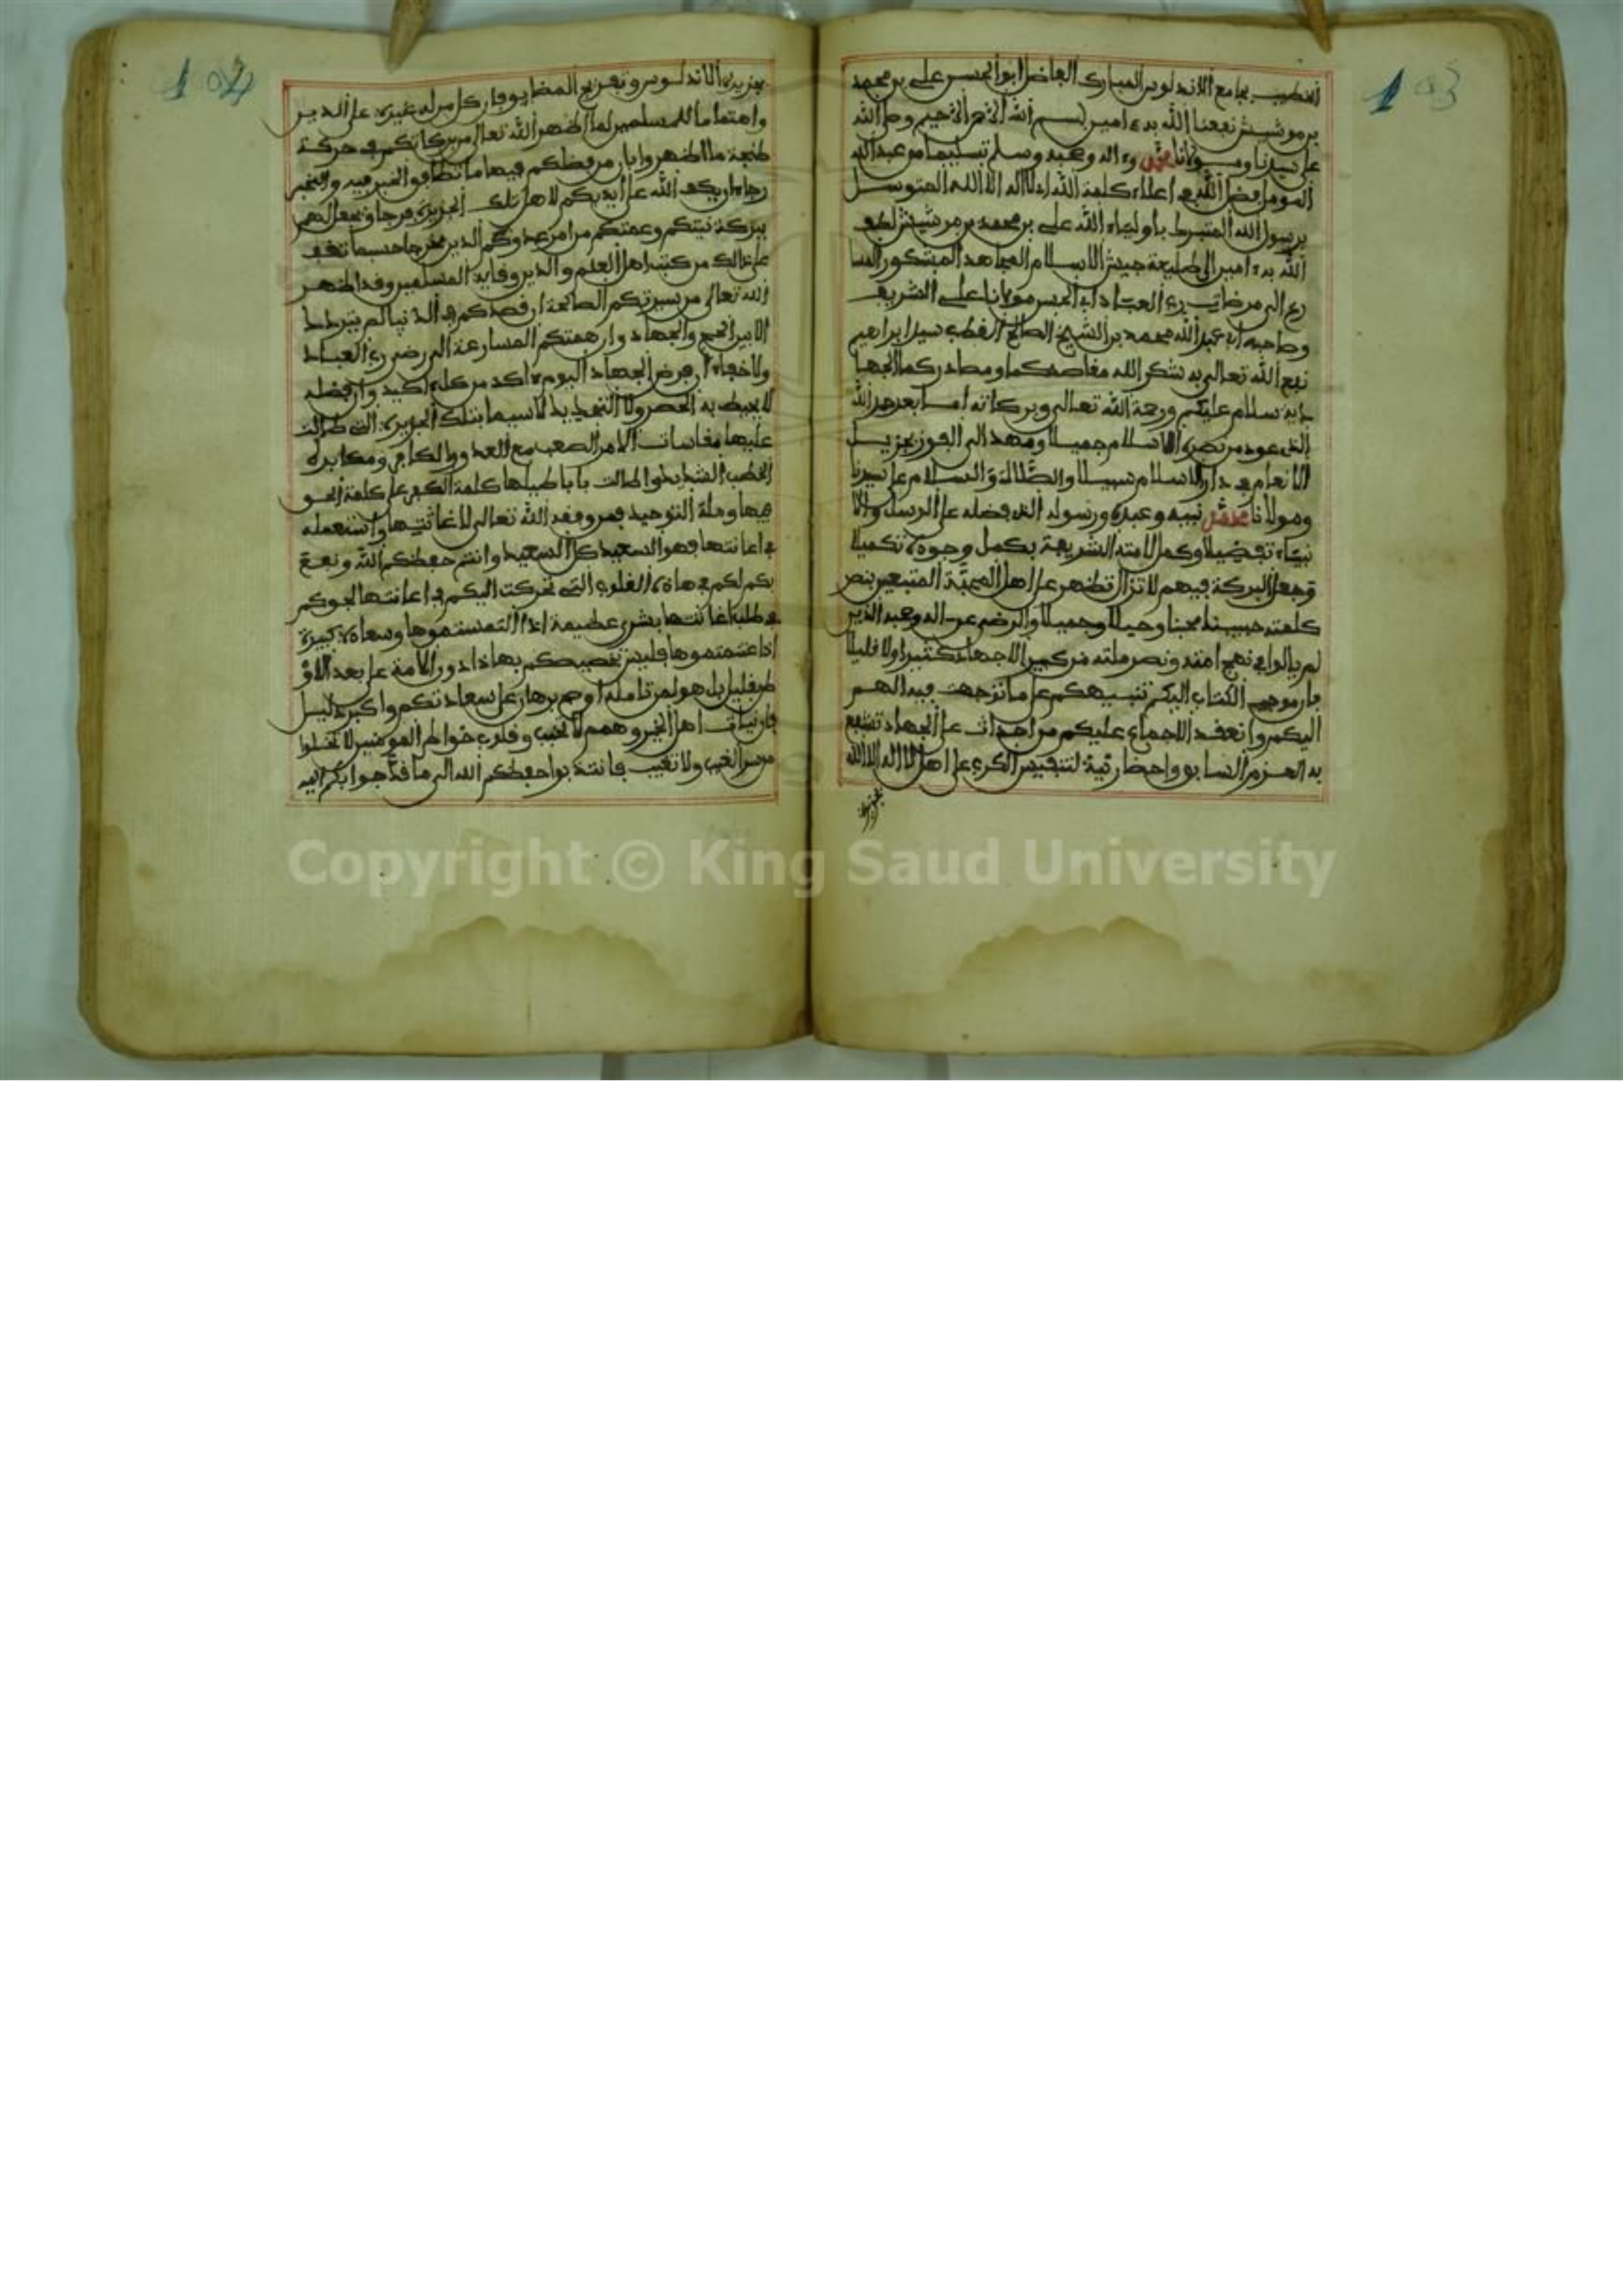 103
الخطيب بجامع الاندلوس المبارك الفاضل ابو الحسن على بن محمد
بن مرشيش نفعنا الله به ءامين بسم الله الرحمن الرحيم وصلى الله
على سيدنا ومولانا محمد وءاله وصحبه وسلم تسليما من عبد الله
المومل فضل الله في اعلاء كلمة الله لا اله الا الله المتوسل
برسول الله المتبرك باولياء الله على بن محمد بن مرشيش لطف
الله به ءامين الى طليعة جيش الاسلام المجاهد المشكور المسا
رع الى مرضات رب العباد ابى الحسن مولانا على الشريف
وصاحبه ابى عبد الله محمد بن الشيخ الصالح القطب سيد ابراهيم
نفع الله تعالى به شكر الله مقاصدكما ومصادركما الجها
دية سلام عليكم ورحمة الله تعالى وبركاته اما بعد حمد الله
الذى عود من نصره الاسلام جميلا ومهد الى الفوز بجزيل
الانعام في دار الاسلام سبيلا والصلاة والسلام على سيدنا
ومولانا محمد نبيه وعبده ورسوله الذى فضله على الرسل والا
نبياء تفضيلا وكمل لامته الشريعة بكمل وجوه تكميلا
وجعل البركة فيهم لا تزال تظهر على اهل المحبة المتبعين بنص
كلمته حبيبنا محبنا وحيلا وجميلا والرضى عن اله وصحبه الذين
لم يالوا في نهج امته ونصر ملته من كبير الاجهاد كثيرا ولا قليلا
فان موجب الكتاب اليكم تنبيهكم على ما توجهت فيه الهمم
اليكم وانعقد الاجماع عليكم من اجداث على الجهاد تشفع
به العزم السابق واحضار نية لتنفيس الكرب على اهل لا اله الا الله
بجزيرة
104
بجزيرة الاندلوس وتفريج المضايق فان كل من له غيرة على الدين
واهتماما للمسلمين لما اظهر الله تعالى من بركاتكم في حركة
طنجة ما اظهر وابان من فضلكم فيها ما تطابق الخبر فيه والمخبر
رجاء ان يكون الله على ايديكم لاهل تلك الجزيرة فرجا ويجعل لهم
ببركة نيتكم وهمتكم من امر عدوكم الدين مخرجا حسبما تقف
على ذالك من كتب اهل العلم والدين وقاية المسلمين وقد اظهر
الله تعالى من سيرتكم الصالحة ان قصدكم في الدنيا لم يتردد
الا بين الحج والجهاد وان همتكم المسارعة الى رضى رب العباد
ولا خفاء ان فرض الجهاد اليوم ءاكد من كل اكيد وان فضله
لا يحيط به الحصر ولا التحديد لا سيما بتلك الجزيرة التى طالت
عليها مقاسات الامر الصعب مع العدو الكافر ومكابرة
الخطب الشديد وطالت باباطيلها كلمة الكفر على كلمة الحق
فيها وملة التوحيد فمن وفقه الله تعالى لاغاثتها واستعمله
في اعانتها فهو السعيد كل السعيد وانتم حفظكم الله ونفع
بكم لكم في هاذه القلوب التى تحركت اليكم في اعانتها لجوكم
في طلب اغاثتها بشرى عظيمة اذا التمستموها وسعادة كبيرة
اذا غنمتموها فليس تخصيصكم بهاذا دون الامة على بعد الاق
طر بقليل بل هو لمن تامله اوضح برهان على سعادتكم واكبر دليل
فان نيات اهل الخير وهمم لا تخيب وقلوب خواطر المومنين لا تخلوا
من سر الغيب ولا تغيب فانتدبوا حفظكم الله الى ما قد اهوا بكم اليه